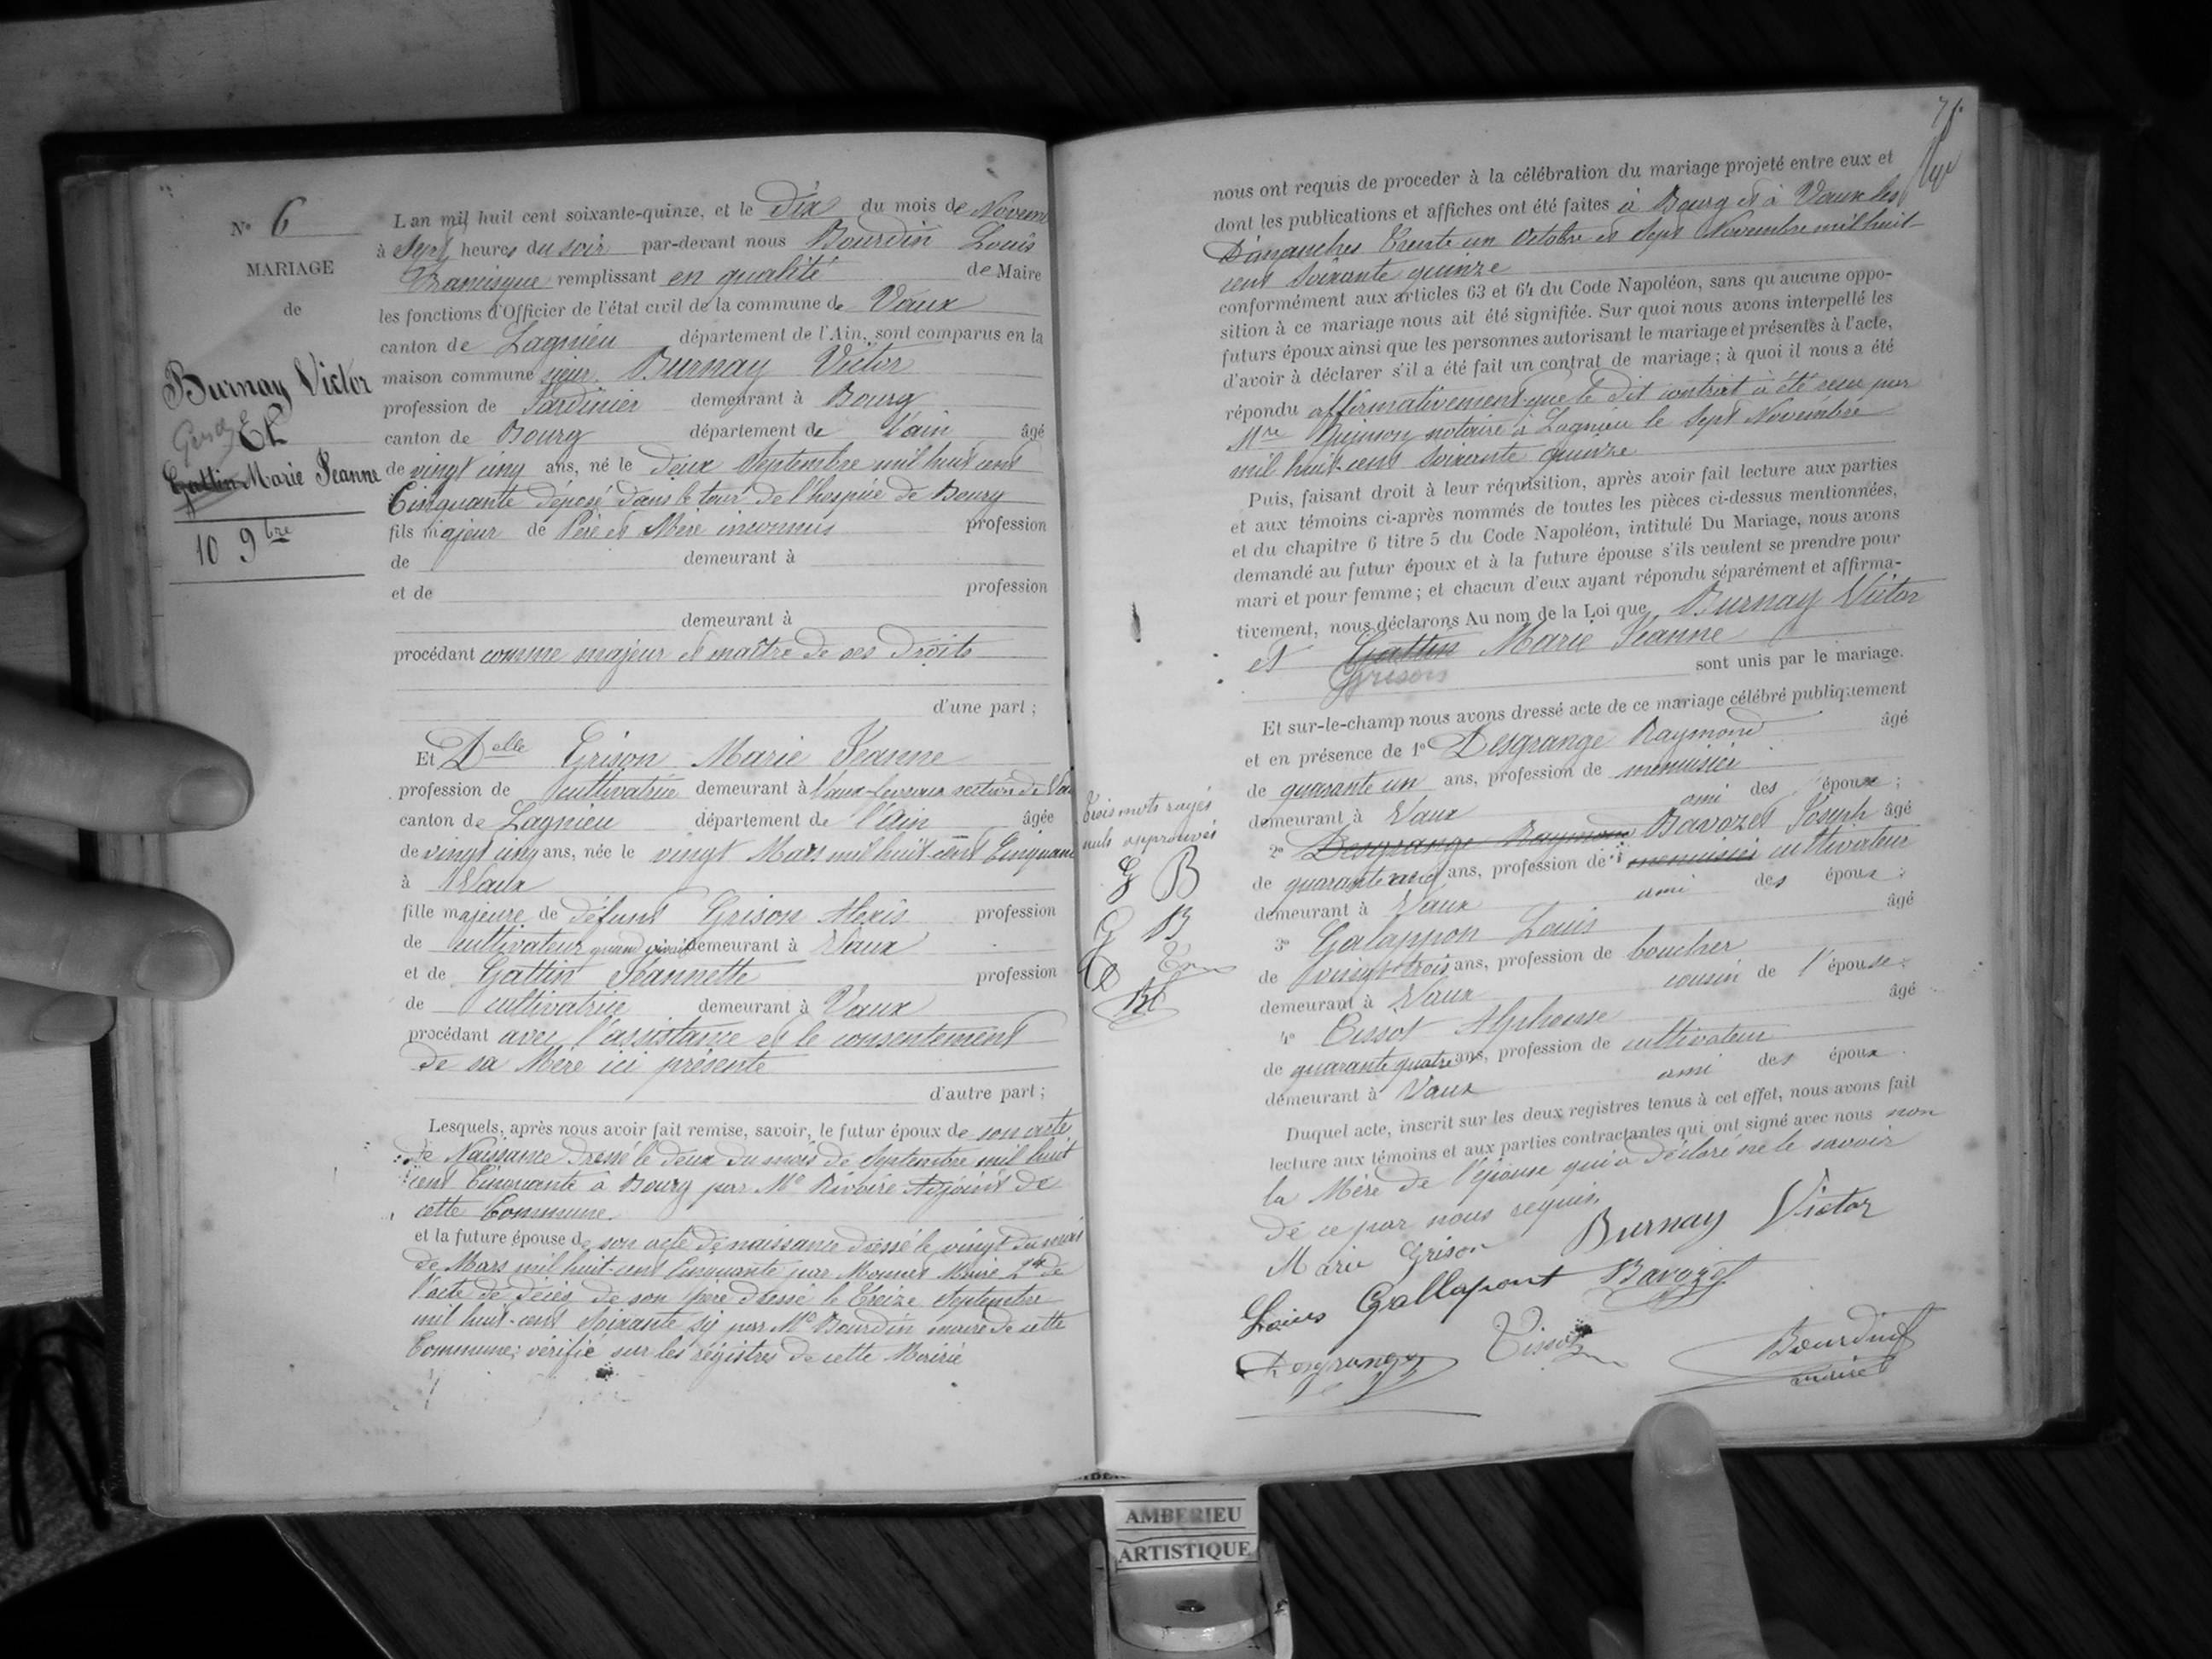 N° 6
MARIAGE
de
Burnay Victor
Et
Gattin Marie Jeanne
10 9bre
L an mil huit cent soixante-quinze, et le Dix du mois de Novem
à Sept heures du soir par-devant nous Bourdin Louis
Francisque remplissant en qualité de Maire
les fonctions d'Officier de l'état civil de la commune de Vaux
canton de Lagnieu département de l'Ain, sont comparus en la
maison commune sieur Burnay Victor
profession de Jardinier demeurant à Bourg
canton de Bourg département de l'ain âgé
de vingt cinq ans, né le deux Septembre mil huit cent
Cinquante déposé dans le tour de l'hospice de Bourg
fils majeur de Père et Mère inconnus profession
de demeurant à
et de profession
demeurant à
procédant comme majeur et maître de ses droits
d'une part ;
Et Delle Grison Marie Jeanne
profession de cultivatrice demeurant à Vaux section de
canton de Lagnieu département de l'Ain âgée
de vingt cinq ans, née le vingt Mars mil huit-cent Cinquan
à Vaux
fille majeure de défunt Grison Alexis profession
de cultivateur quand vivait demeurant à Vaux
et de Gattin Jeannette profession
de cultivatrice demeurant à Vaux
procédant avec l'assistance et le consentement
de sa Mère ici présente
d'autre part ;
Lesquels, après nous avoir fait remise, savoir, le futur époux de son acte
de Naissance dressé le deux du mois de Septembre mil huit
cent Cinquante à Bourg par Me Rivoire Adjoint de
cette Commune.
et la future épouse de son acte de naissance dressé le vingt du mois
de Mars mil huit-cent Cinquante par Maire 2° de
l'acte de décès de son père dressé le Treize Septembre
mil huit-cent Soixante six par Me Bourdin maire de cette
Commune; vérifié sur les régistres de cette Mairie
nous ont requis de proceder à la célébration du mariage projeté entre eux et
dont les publications et affiches ont été faites à Bourg et à Vaux les
Dimanches Trente un Octobre et Sept Novembre mil huit-
cent Soixante quinze
conformément aux articles 63 et 64 du Code Napoléon, sans qu aucune oppo-
sition à ce mariage nous ait été signifiée. Sur quoi nous avons interpellé les
futurs époux ainsi que les personnes autorisant le mariage et présentes à l'acte,
d'avoir à déclarer s'il a été fait un contrat de mariage ; à quoi il nous a été
répondu affirmativement que le dit contrat à été reçu par
Mre notaire à Lagnieu le Sept Novembre
mil huit-cent Soixante quinze
Puis, faisant droit à leur réquisition, après avoir fait lecture aux parties
et aux témoins ci-après nommés de toutes les pièces ci-dessus mentionnées,
et du chapitre 6 titre 5 du Code Napoléon, intitulé Du Mariage, nous avons
demandé au futur époux et à la future épouse s'ils veulent se prendre pour
mari et pour femme ; et chacun d'eux ayant répondu séparément et affirma-
tivement, nous déclarons Au nom de la Loi que Burnay Victor
et Gattin Marie Jeanne
Grison sont unis par le mariage.
Et sur-le-champ nous avons dressé acte de ce mariage célébré publiquement
et en présence de 1° Desgrange Raymond âgé
de quarante un ans, profession de menuisier
demeurant à Vaux ami des époux ;
2° Desgrange Raymond Bavozet Joseph âgé
de quarante cinq ans, profession de menuisier cultivateur
demeurant à Vaux ami des époux ;
3° Galappon Louis âgé
de vingt-trois ans, profession de boucher
demeurant à Vaux cousin de l'épouse ;
4° Tissot Alphonse âgé
de quarante quatre ans, profession de cultivateur
demeurant à Vaux ami des époux.
Duquel acte, inscrit sur les deux registres tenus à cet effet, nous avons fait
lecture aux témoins et aux parties contractantes qui ont signé avec nous non
la Mère de l'épouse qui a déclaré ne le savoir
de ce par nous requis.
Marie Grison Burnay Victor
Louis Gallapont Bavozet
Desgranges Tissot Bourdin
maire
Trois mots rayés
nuls approuvés
G B
G B
AMBERIEU
ARTISTIQUE